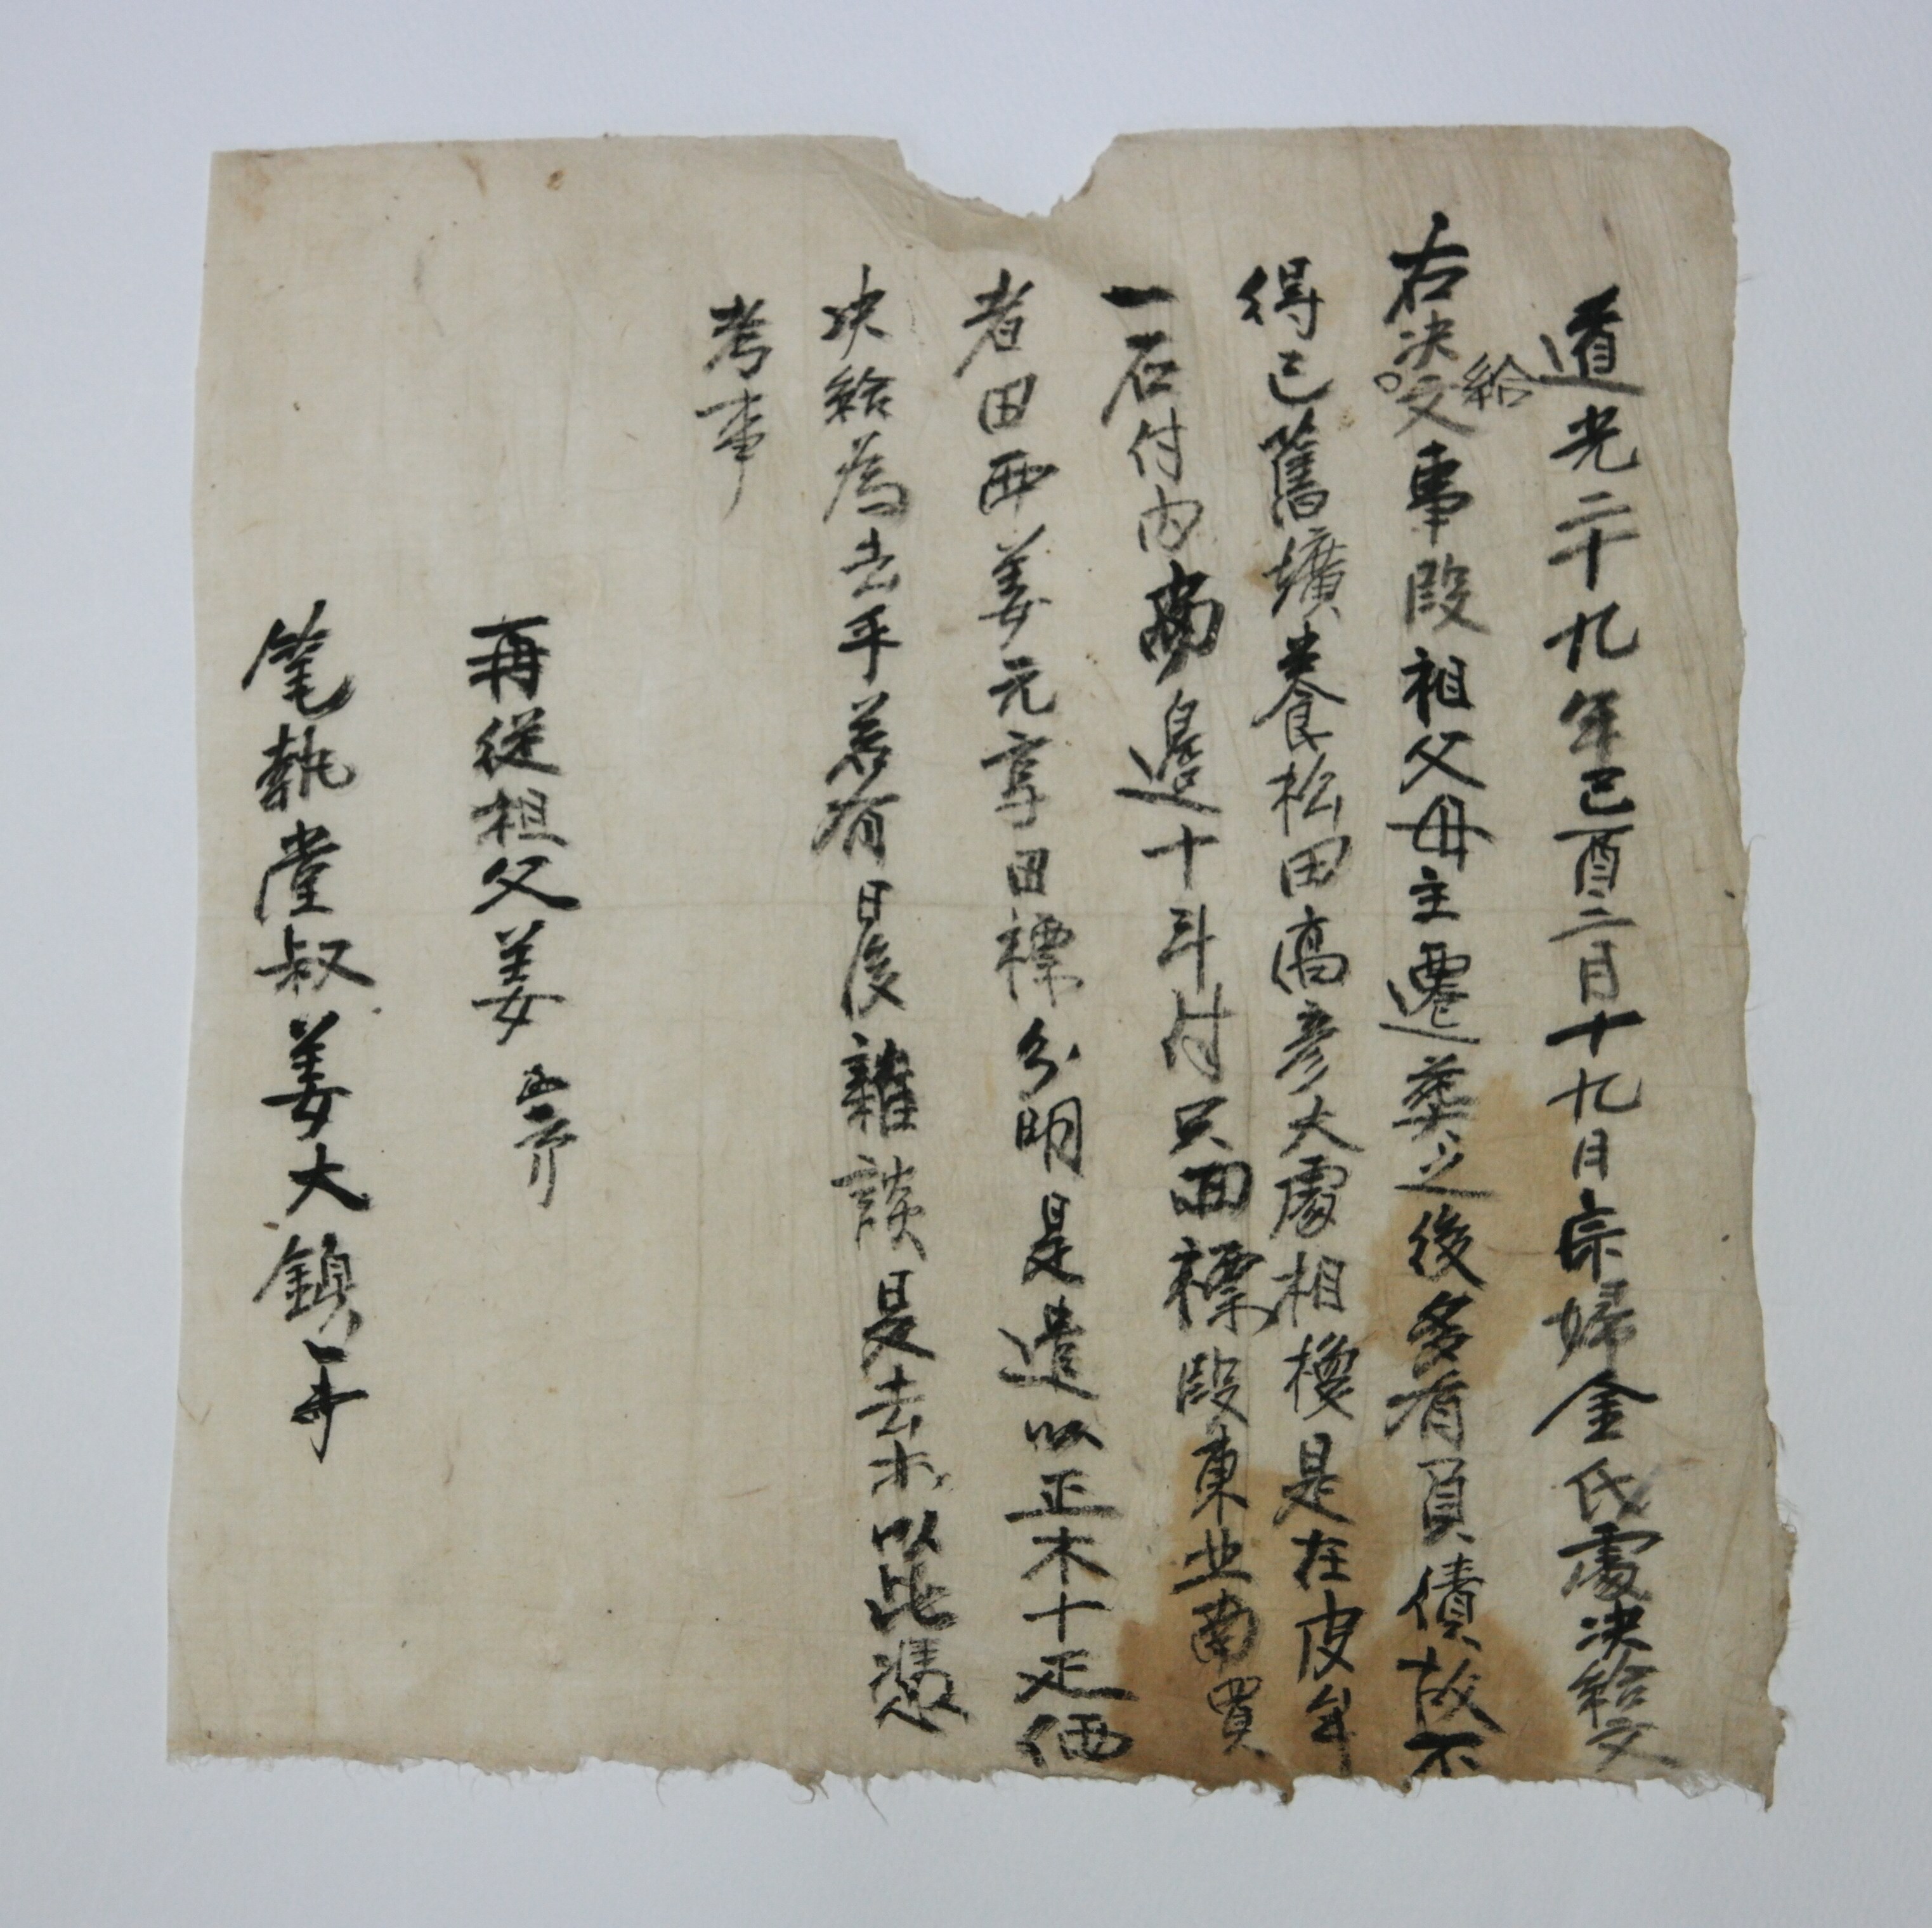 道光二十九年己酉二月十九日宗婦金氏處决給文
右决給文事段祖父母主遷葬之後多有負債故不
得已舊壙養松田高彦大處相換是在皮牟
一石付內南邉十斗付只四標段東北南買
者田西姜元享田標分明是遣以正木十疋価
决給爲去乎若有日後雜談是去示以此憑
考事
再從祖父姜
筆執堂叔姜大鎮